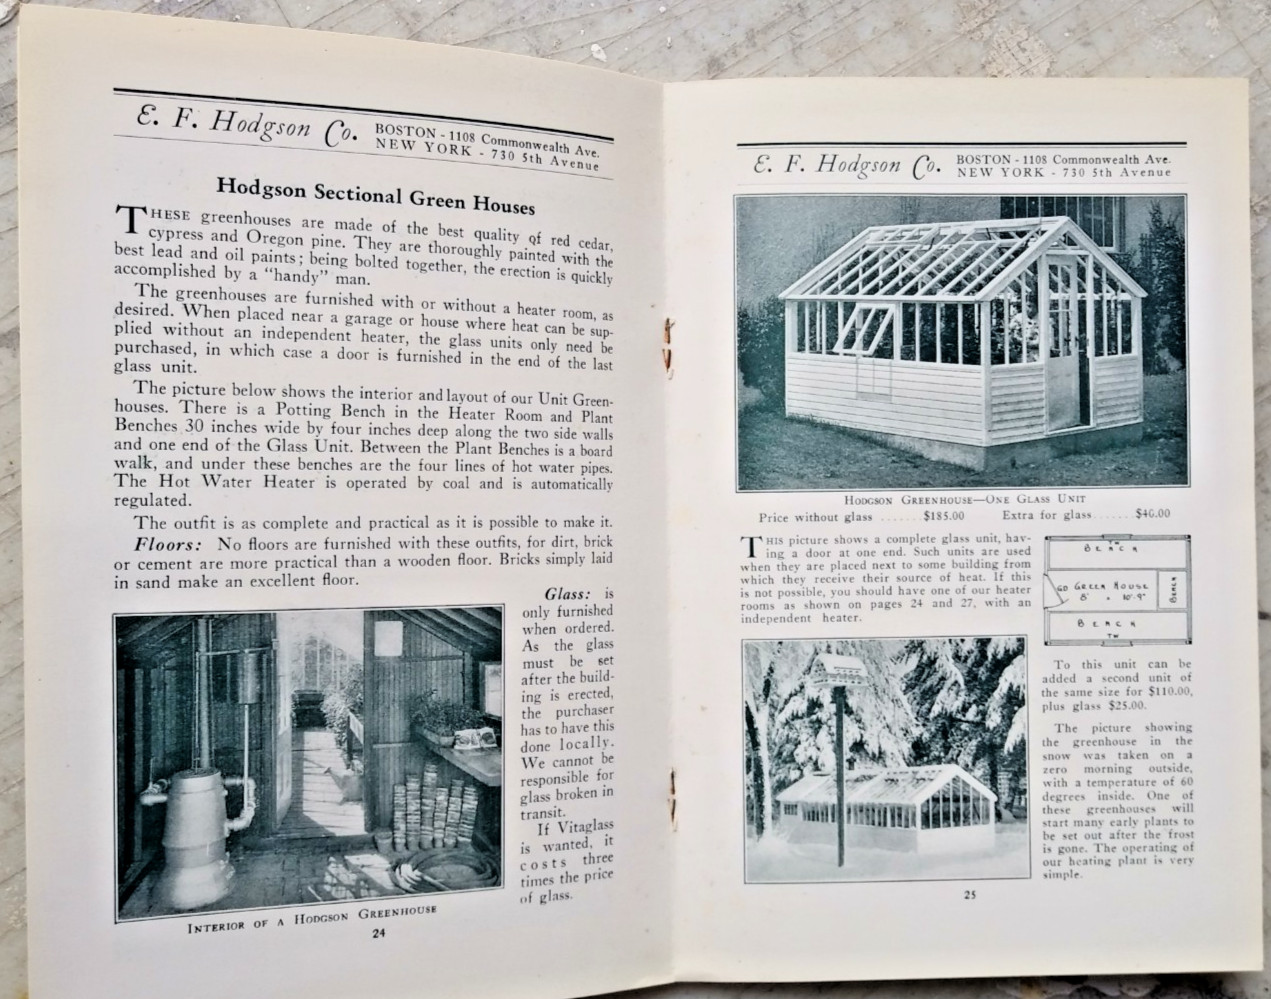 E. F. Hodgson Co. BOSTON - 1108 Commonwealth Ave.
NEW YORK - 730 5th Avenue
Hodgson Sectional Green Houses
THESE greenhouses are made of the best quality of red cedar,
cypress and Oregon pine. They are thoroughly painted with the
best lead and oil paints; being bolted together, the erection is quickly
accomplished by a "handy" man.
The greenhouses are furnished with or without a heater room, as
desired. When placed near a garage or house where heat can be sup-
plied without an independent heater, the glass units only need be
purchased, in which case a door is furnished in the end of the last
glass unit.
The picture below shows the interior and layout of our Unit Green-
houses. There is a Potting Bench in the Heater Room and Plant
Benches 30 inches wide by four inches deep along the two side walls
and one end of the Glass Unit. Between the Plant Benches is a board
walk, and under these benches are the four lines of hot water pipes.
The Hot Water Heater is operated by coal and is automatically
regulated.
The outfit is as complete and practical as it is possible to make it.
Floors: No floors are furnished with these outfits, for dirt, brick
or cement are more practical than a wooden floor. Bricks simply laid
in sand make an excellent floor.
Glass: is
only furnished
when ordered.
As the glass
must be set
after the build-
ing is erected,
the purchaser
has to have this
done locally.
We cannot be
responsible for
glass broken in
transit.
If Vitaglass
is wanted, it
costs three
times the price
of glass.
INTERIOR OF A HODGSON GREENHOUSE
24
E. F. Hodgson Co. BOSTON - 1108 Commonwealth Ave.
NEW YORK - 730 5th Avenue
HODGSON GREENHOUSE—ONE GLASS UNIT
Price without glass ...... $185.00 Extra for glass ...... $40.00
THIS picture shows a complete glass unit, hav-
ing a door at one end. Such units are used
when they are placed next to some building from
which they receive their source of heat. If this
is not possible, you should have one of our heater
rooms as shown on pages 24 and 27, with an
independent heater.
TW
BENCH
GD GREEN HOUSE
8' x 10'-9"
BENCH
BENCH
TW
To this unit can be
added a second unit of
the same size for $110.00,
plus glass $25.00.
The picture showing
the greenhouse in the
snow was taken on a
zero morning outside,
with a temperature of 60
degrees inside. One of
these greenhouses will
start many early plants to
be set out after the frost
is gone. The operating of
our heating plant is very
simple.
25